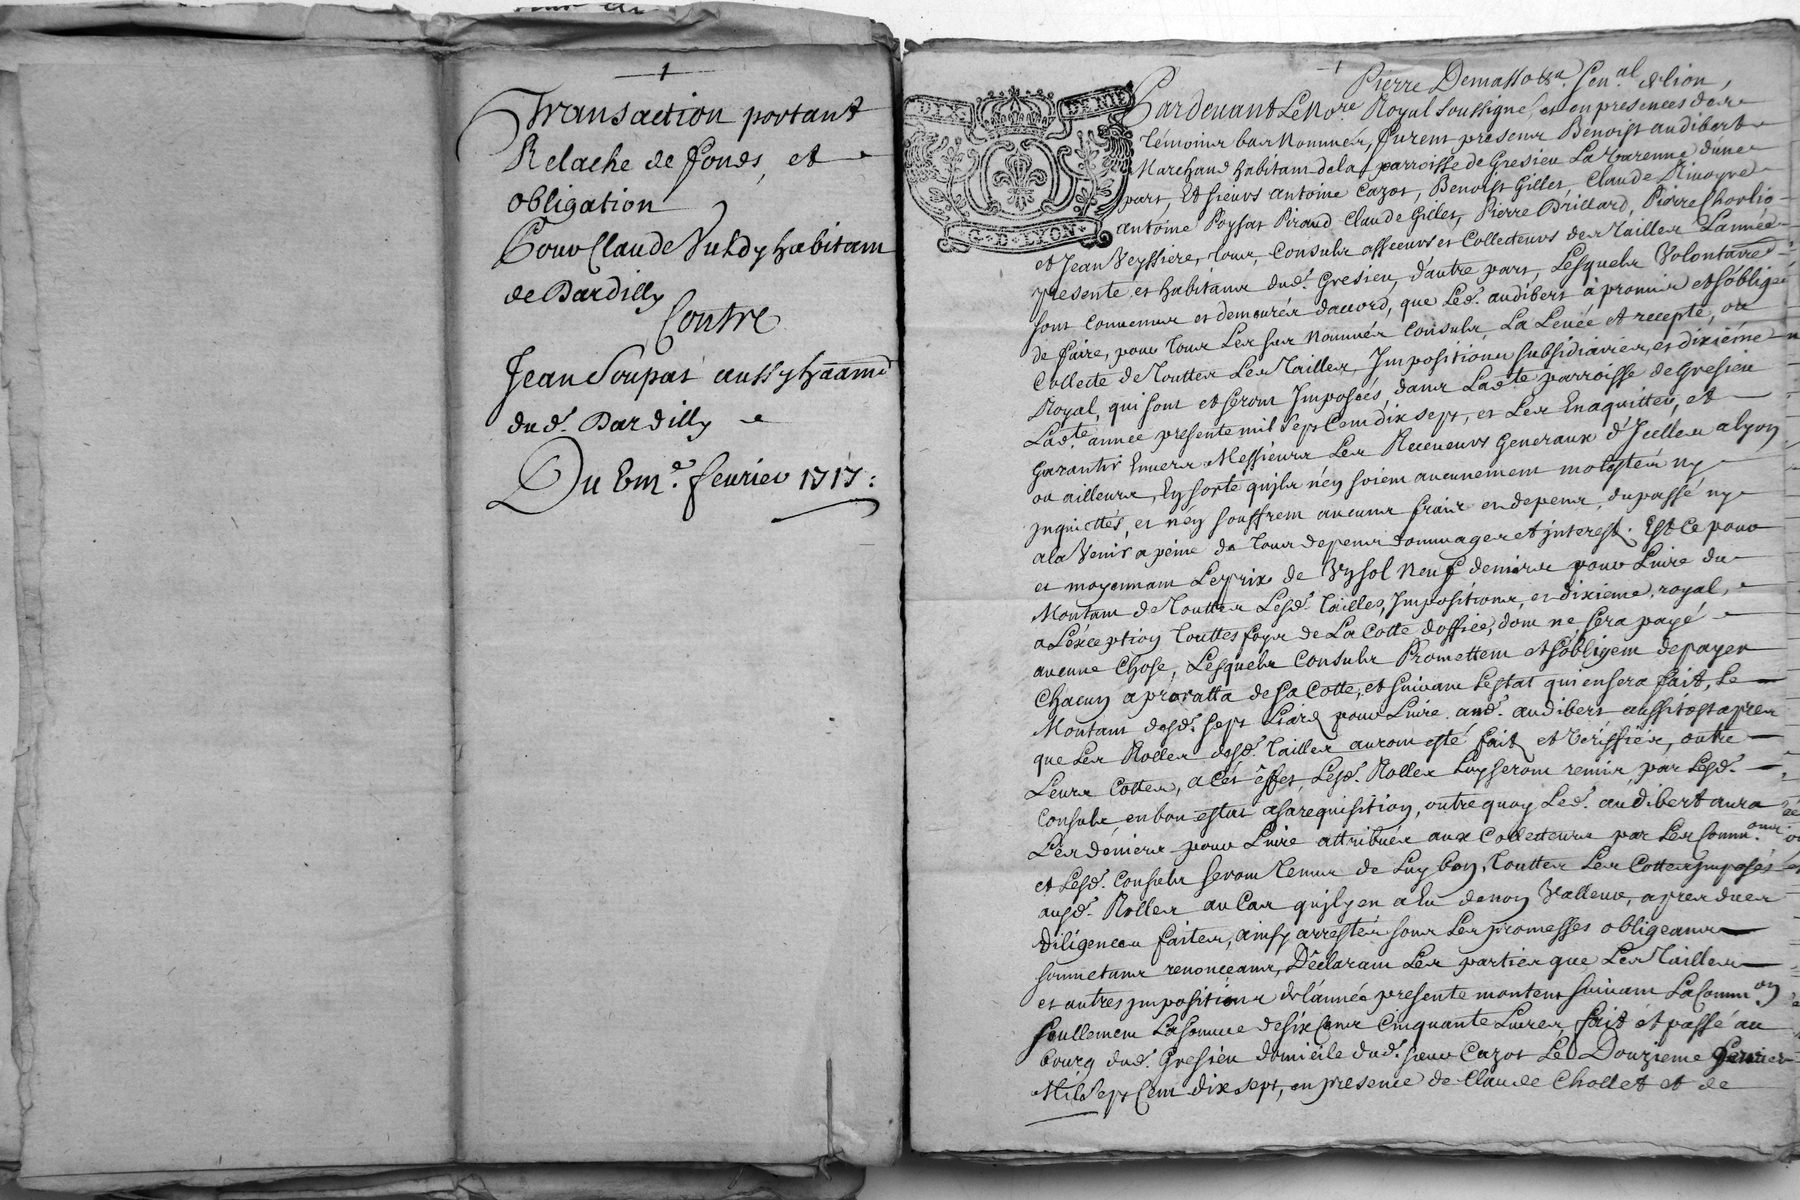 1
Transaction portant
Relache de fonds, et
obligation
Pour Claude Vuldy habitant
de Dardilly
Contre
Jean Soupat aussy haant
dud. Dardilly
Du fevrier 1717:
1
Pierre Demasso Sen.al de lion,
DEUX DENIE
G·D·LYON
Pardevant Le No.re Royal soussigné, et en presences des
témoins bas Nommés, furent presens Benoist audibert
Marchand habitant de la parroisse de Gresieu La Varenne d'une
part, Et sieurs antoine Cazot, Benoist Gillet, Claude
antoine Poysat Piraud Claude Gillet, Pierre Brillard, Pierre
et Jean Veyssiere, tous, Consuls assceurs et Collecteurs des Tailles L'année
presente et habitans dud. Gresieu, d'autre part, Lesquels Volontaire
sont Convenus et demeurés d'accord, que Led. audibert à promis et s'oblige
de faire, pour tous Les sus nommés Consuls La Levée et recepte, ou
Collecte de Touttes Les Tailles, Impositions subsidiaires, et dixiéme
Royal, qui sont et seront Imposés, dans Lad.te parroisse de Gresieu
Lad.te année presente mil sept Cent dix sept, et Les En aquitter, et
garantir Envers Messieurs Les Receveurs Generaux d'Icelles a lyon
ou ailleurs, En sorte qu'ils n'en soient aucunement molestés ny
jnquiettés, et n'en souffrent aucuns frais et depens, du passé ny
a la Venir a peine de tous depens dommages et jnterest. Est Ce pour
et moyennant Le prix de Un sol neuf deniers pour Livre du
Montant de Touttes Lesd. Tailles, Impositions, et dixieme royal,
a L'éxception touttes foys de La Cotte d'office, dont ne sera payé
aucune chose, Lesquels Consuls Promettent et s'obligent de payer
Chacun a proratta de sa Cotte, et suivant L'estat qui en sera fait, Le
Montant desd. sept Liards pour Livre aud. audibert aussitost apres
que Les Rolles desd. Tailles auront esté fait et Veriffiés, outre
Leurs Cottes, a cés éffet Lesd. Rolles Luy seront remis par Lesd.
Consuls en bon estat a sa requisition, outre quoy Led. audibert aura
Les deniers pour Livre attribués aux Collecteurs par Les Comm.ons
et Lesd. Consuls seront tenus de Luy bon, Touttes Les Cottes jmposés
ausd. Rolles au Cas qu'jl y en a Eu de non Valleur, apres dues
diligences faites, ainsy arrestés sous Les promesses obligeans
soumetans renonceans, Déclarant Les parties que Les Tailles
et autres jmpositions de L'année presente montent suivant La Comm.on
seullement La somme de six Cens Cinquante Livres, fait et passé au
bourg dud. Gresieu domicile dud. sieur Cazot Le Douzieme
Mil sept Cent dix sept, en presence de Claude Chollet et de